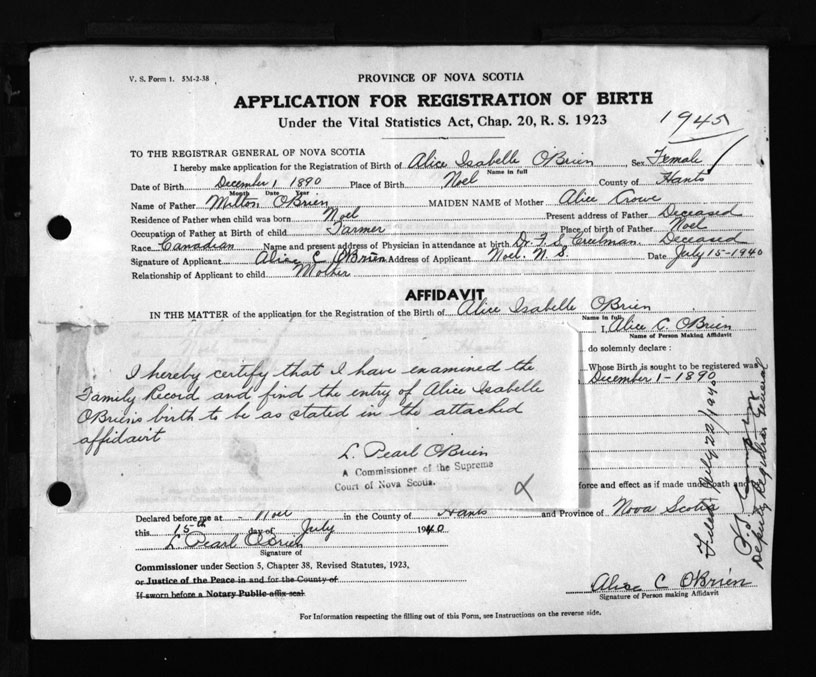 V. S. Form 1. 5M-2-38
PROVINCE OF NOVA SCOTIA
APPLICATION FOR REGISTRATION OF BIRTH
Under the Vital Statistics Act, Chap. 20, R. S. 1923
1945
TO THE REGISTRAR GENERAL OF NOVA SCOTIA
I hereby make application for the Registration of Birth of Alice Isabelle O'Brien, Sex Female
Name in full
Date of Birth December 1 1890 Place of Birth Noel County of Hants
Month Date Year
Name of Father Milton O'Brien MAIDEN NAME of Mother Alice Crowe
Residence of Father when child was born Noel Present address of Father Deceased
Occupation of Father at Birth of child Farmer Place of birth of Father Noel
Race Canadian Name and present address of Physician in attendance at birth Dr. F. S. Creelman. Deceased
Signature of Applicant Alice C O'Brien Address of Applicant Noel. N. S. Date July 15-1940
Relationship of Applicant to child Mother
AFFIDAVIT
IN THE MATTER of the application for the Registration of the Birth of Alice Isabelle O'Brien
Name in full
I, Alice C. O'Brien
Name of Person Making Affidavit
do solemnly declare :
Whose Birth is sought to be registered was
December 1-1890
I hereby certify that I have examined the
Family Record and find the entry of Alice Isabelle
O'Brien's birth to be as stated in the attached
affidavit
L. Pearl O'Brien
A Commissioner of the Supreme
Court of Nova Scotia.
force and effect as if made under oath and
Declared before me at Noel in the County of Hants and Province of Nova Scotia
this 15th day of July 1940
L Pearl O'Brien
Signature of
Commissioner under Section 5, Chapter 38, Revised Statutes, 1923,
or Justice of the Peace in and for the County of
If sworn before a Notary Public affix seal.
Alice C O'Brien
Signature of Person making Affidavit
For Information respecting the filling out of this Form, see Instructions on the reverse side.
Filed July 22/1940
Deputy Registrar General